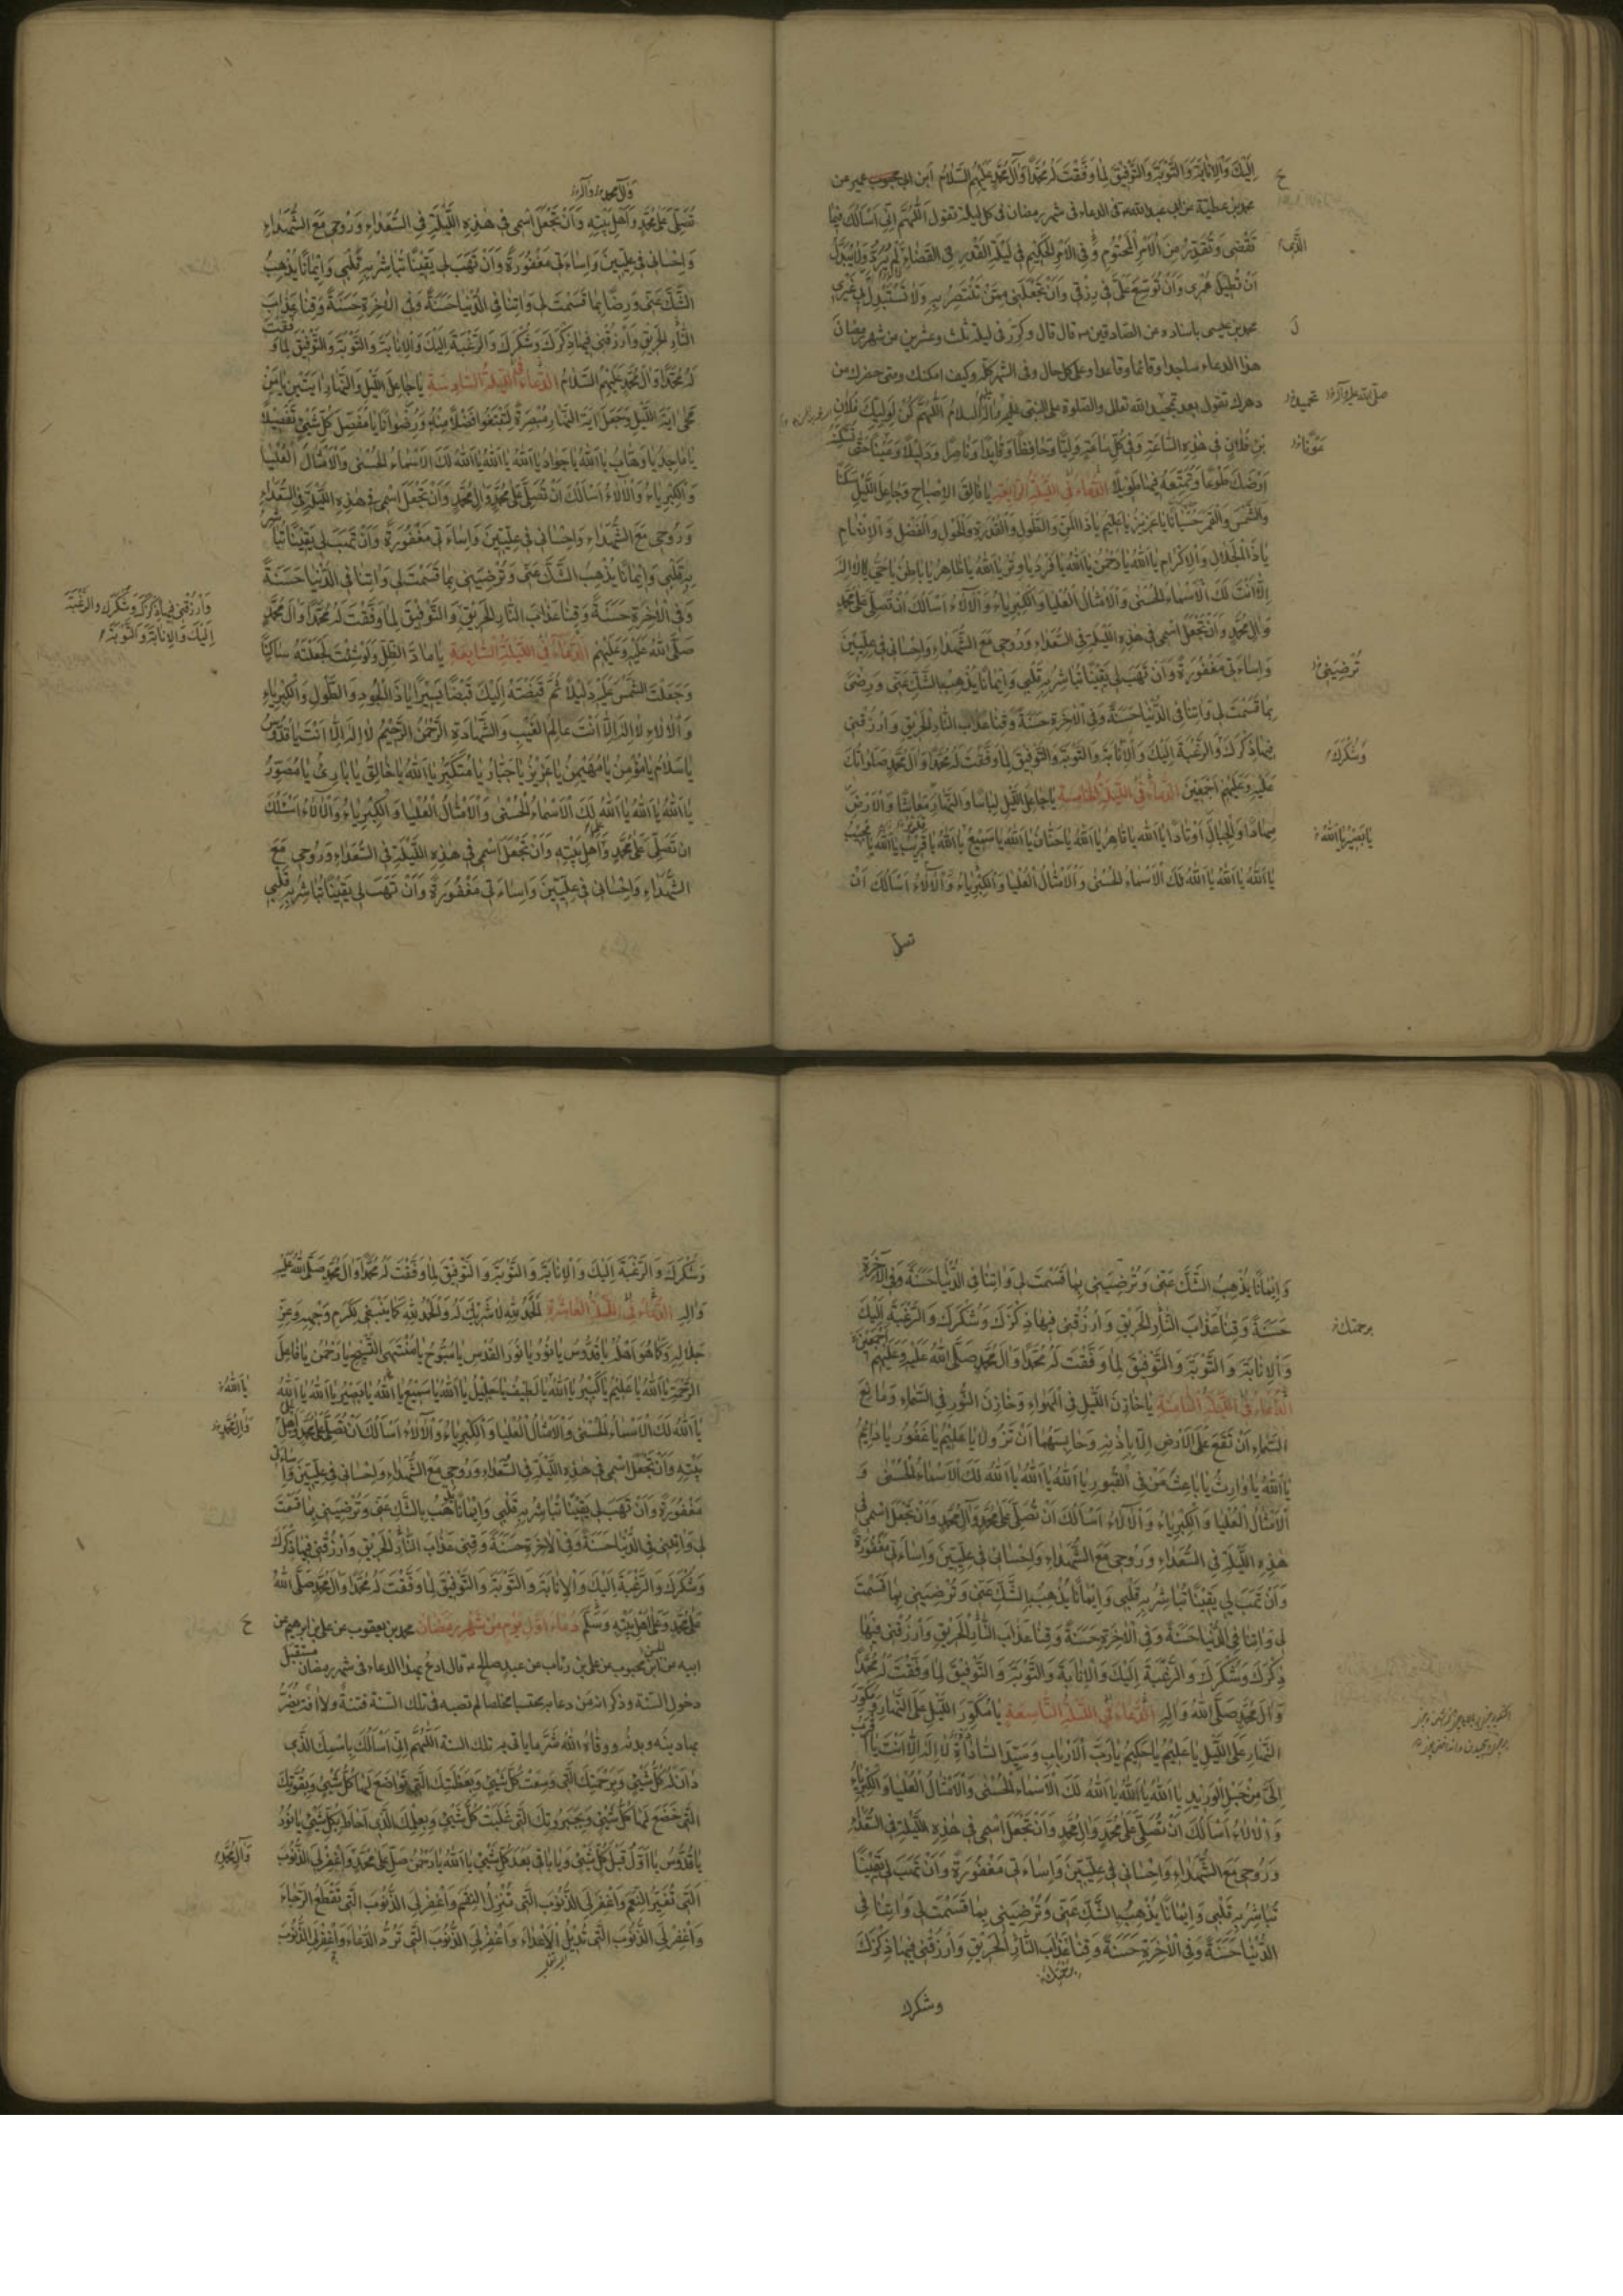 اِلَيْكَ وَالْاِنَابَةَ وَالتَّوْبَةَ وَالتَّوْفِيقَ لِمَا وَفَّقْتَ لَهُ مُحَمَّدًا وَآلَ مُحَمَّدٍ عَلَيْهِمُ السَّلَامُ ابن ابى عمير عن
محمد بن عطية عن ابى عبد الله ء فى الدعاء فى شهر رمضان فى كل ليلة تقول اَللّٰهُمَّ اِنِّى اَسْاَلُكَ فِيمَا
تَقْضِى وَتُقَدِّرُ مِنَ الْاَمْرِ الْمَحْتُومِ وَفِى الْاَمْرِ الْحَكِيمِ فِى لَيْلَةِ الْقَدْرِ فِى الْقَضَاءِ الَّذِى لَا يُرَدُّ وَلَا يُبَدَّلُ
اَنْ تُطِيلَ عُمْرِى وَاَنْ تُوَسِّعَ عَلَىَّ فِى رِزْقِى وَاَنْ تَجْعَلَنِى مِمَّنْ تَنْتَصِرُ بِهِ وَلَا تَسْتَبْدِلْ بِى غَيْرِى
محمد بن عيسى باسناده عن الصادقين ء قال قال وكرر فى ليلة ثلث وعشرين من شهر رمضان
هذا الدعاء ساجدا وقائما وقاعدا وعلى كل حال وفى الشهر كله وكيف امكنك ومتى حضرك من
دهرك تقول بعد تمجيد الله تعالى والصلوة على النبى عليه وآله السلام اَللّٰهُمَّ كُنْ لِوَلِيِّكَ فُلَانِ
بْنِ فُلَانٍ فِى هٰذِهِ السَّاعَةِ وَفِى كُلِّ سَاعَةٍ وَلِيًّا وَحَافِظًا وَقَايِدًا وَنَاصِرًا وَدَلِيلًا وَعَيْنًا حَتَّى تُسْكِنَهُ
اَرْضَكَ طَوْعًا وَتُمَتِّعَهُ فِيهَا طَوِيلًا الدُّعَاءُ فِى اللَّيْلَةِ الرَّابِعَةِ يَا فَالِقَ الْاِصْبَاحِ وَجَاعِلَ اللَّيْلِ سَكَنًا
وَالشَّمْسَ وَالْقَمَرَ حُسْبَانًا يَا عَزِيزُ يَا عَلِيمُ يَا ذَا الْمَنِّ وَالطَّوْلِ وَالْقُدْرَةِ وَالْحَوْلِ وَالْفَضْلِ وَالْاِنْعَامِ
يَا ذَا الْجَلَالِ وَالْاِكْرَامِ يَا اَللّٰهُ يَا رَحْمٰنُ يَا اَللّٰهُ يَا فَرْدُ يَا وِتْرُ يَا اَللّٰهُ يَا ظَاهِرُ يَا بَاطِنُ يَا حَىُّ لَا اِلٰهَ
اِلَّا اَنْتَ لَكَ الْاَسْمَاءُ الْحُسْنَى وَالْاَمْثَالُ الْعُلْيَا وَالْكِبْرِيَاءُ وَالْآلَاءُ اَسْاَلُكَ اَنْ تُصَلِّىَ عَلَى مُحَمَّدٍ
وَآلِ مُحَمَّدٍ وَاَنْ تَجْعَلَ اسْمِى فِى هٰذِهِ اللَّيْلَةِ فِى السُّعَدَاءِ وَرُوحِى مَعَ الشُّهَدَاءِ وَاِحْسَانِى فِى عِلِّيِّينَ
وَاِسَاءَتِى مَغْفُورَةً وَاَنْ تَهَبَ لِى يَقِينًا تُبَاشِرُ بِهِ قَلْبِى وَاِيمَانًا يُذْهِبُ الشَّكَّ عَنِّى وَرِضًى
بِمَا قَسَمْتَ لِى وَآتِنَا فِى الدُّنْيَا حَسَنَةً وَفِى الْآخِرَةِ حَسَنَةً وَقِنَا عَذَابَ النَّارِ الْحَرِيقِ وَارْزُقْنِى
فِيهَا ذِكْرَكَ وَالرَّغْبَةَ اِلَيْكَ وَالْاِنَابَةَ وَالتَّوْبَةَ وَالتَّوْفِيقَ لِمَا وَفَّقْتَ لَهُ مُحَمَّدًا وَآلَ مُحَمَّدٍ صَلَوَاتُكَ
عَلَيْهِ وَعَلَيْهِمْ اَجْمَعِينَ الدُّعَاءُ فِى اللَّيْلَةِ الْخَامِسَةِ يَا جَاعِلَ اللَّيْلِ لِبَاسًا وَالنَّهَارِ مَعَاشًا وَالْاَرْضِ
مِهَادًا وَالْجِبَالِ اَوْتَادًا يَا اَللّٰهُ يَا قَاهِرُ يَا اَللّٰهُ يَا حَنَّانُ يَا اَللّٰهُ يَا سَمِيعُ يَا اَللّٰهُ يَا قَرِيبُ يَا اَللّٰهُ يَا مُجِيبُ
يَا اَللّٰهُ يَا اَللّٰهُ يَا اَللّٰهُ لَكَ الْاَسْمَاءُ الْحُسْنَى وَالْاَمْثَالُ الْعُلْيَا وَالْكِبْرِيَاءُ وَالْآلَاءُ اَسْاَلُكَ اَنْ
تصلى
الَّذِى
صلى الله عليه وآله
تُرْضِيَنِى
وَشُكْرَكَ
يَا بَصِيرُ يَا اَللّٰهُ
وَآلِ مُحَمَّدٍ
تُصَلِّىَ عَلَى مُحَمَّدٍ وَاَهْلِ بَيْتِهِ وَاَنْ تَجْعَلَ اسْمِى فِى هٰذِهِ اللَّيْلَةِ فِى السُّعَدَاءِ وَرُوحِى مَعَ الشُّهَدَاءِ
وَاِحْسَانِى فِى عِلِّيِّينَ وَاِسَاءَتِى مَغْفُورَةً وَاَنْ تَهَبَ لِى يَقِينًا تُبَاشِرُ بِهِ قَلْبِى وَاِيمَانًا يُذْهِبُ
الشَّكَّ عَنِّى وَرِضًا بِمَا قَسَمْتَ لِى وَآتِنَا فِى الدُّنْيَا حَسَنَةً وَفِى الْآخِرَةِ حَسَنَةً وَقِنَا عَذَابَ
النَّارِ الْحَرِيقِ وَارْزُقْنِى فِيهَا ذِكْرَكَ وَشُكْرَكَ وَالرَّغْبَةَ اِلَيْكَ وَالْاِنَابَةَ وَالتَّوْبَةَ وَالتَّوْفِيقَ لِمَا وَفَّقْتَ
لَهُ مُحَمَّدًا وَآلَ مُحَمَّدٍ عَلَيْهِمُ السَّلَامُ الدُّعَاءُ فِى اللَّيْلَةِ السَّادِسَةِ يَا جَاعِلَ اللَّيْلِ وَالنَّهَارِ آيَتَيْنِ يَا مَنْ
مَحَى آيَةَ اللَّيْلِ وَجَعَلَ آيَةَ النَّهَارِ مُبْصِرَةً لِتَبْتَغُوا فَضْلًا مِنْهُ وَرِضْوَانًا يَا مُفَصِّلَ كُلِّ شَىْءٍ تَفْصِيلًا
يَا مَاجِدُ يَا وَهَّابُ يَا اَللّٰهُ يَا جَوَادُ يَا اَللّٰهُ يَا اَللّٰهُ يَا اَللّٰهُ لَكَ الْاَسْمَاءُ الْحُسْنَى وَالْاَمْثَالُ الْعُلْيَا
وَالْكِبْرِيَاءُ وَالْآلَاءُ اَسْاَلُكَ اَنْ تُصَلِّىَ عَلَى مُحَمَّدٍ وَآلِ مُحَمَّدٍ وَاَنْ تَجْعَلَ اسْمِى فِى هٰذِهِ اللَّيْلَةِ فِى السُّعَدَاءِ
وَرُوحِى مَعَ الشُّهَدَاءِ وَاِحْسَانِى فِى عِلِّيِّينَ وَاِسَاءَتِى مَغْفُورَةً وَاَنْ تَهَبَ لِى يَقِينًا تُبَاشِرُ
بِهِ قَلْبِى وَاِيمَانًا يُذْهِبُ الشَّكَّ عَنِّى وَتُرْضِيَنِى بِمَا قَسَمْتَ لِى وَآتِنَا فِى الدُّنْيَا حَسَنَةً
وَفِى الْآخِرَةِ حَسَنَةً وَقِنَا عَذَابَ النَّارِ الْحَرِيقِ وَالتَّوْفِيقَ لِمَا وَفَّقْتَ لَهُ مُحَمَّدًا وَآلَ مُحَمَّدٍ
صَلَّى اللّٰهُ عَلَيْهِ وَعَلَيْهِمْ الدُّعَاءُ فِى اللَّيْلَةِ السَّابِعَةِ يَا مَادَّ الظِّلِّ وَلَوْ شِئْتَ لَجَعَلْتَهُ سَاكِنًا
وَجَعَلْتَ الشَّمْسَ عَلَيْهِ دَلِيلًا ثُمَّ قَبَضْتَهُ اِلَيْكَ قَبْضًا يَسِيرًا يَا ذَا الْجُودِ وَالطَّوْلِ وَالْكِبْرِيَاءِ
وَالْآلَاءِ لَا اِلٰهَ اِلَّا اَنْتَ عَالِمَ الْغَيْبِ وَالشَّهَادَةِ الرَّحْمٰنُ الرَّحِيمُ لَا اِلٰهَ اِلَّا اَنْتَ يَا قُدُّوسُ
يَا سَلَامُ يَا مُؤْمِنُ يَا مُهَيْمِنُ يَا عَزِيزُ يَا جَبَّارُ يَا مُتَكَبِّرُ يَا اَللّٰهُ يَا خَالِقُ يَا بَارِئُ يَا مُصَوِّرُ
يَا اَللّٰهُ يَا اَللّٰهُ يَا اَللّٰهُ لَكَ الْاَسْمَاءُ الْحُسْنَى وَالْاَمْثَالُ الْعُلْيَا وَالْكِبْرِيَاءُ وَالْآلَاءُ اَسْئَلُكَ
اَنْ تُصَلِّىَ عَلَى مُحَمَّدٍ وَاَهْلِ بَيْتِهِ وَاَنْ تَجْعَلَ اسْمِى فِى هٰذِهِ اللَّيْلَةِ فِى السُّعَدَاءِ وَرُوحِى مَعَ
الشُّهَدَاءِ وَاِحْسَانِى فِى عِلِّيِّينَ وَاِسَاءَتِى مَغْفُورَةً وَاَنْ تَهَبَ لِى يَقِينًا تُبَاشِرُ بِهِ قَلْبِى
وَارْزُقْنِى فِيهَا ذِكْرَكَ وَشُكْرَكَ وَالرَّغْبَةَ
اِلَيْكَ وَالْاِنَابَةَ وَالتَّوْبَةَ
وَاِيمَانًا يُذْهِبُ الشَّكَّ عَنِّى وَتُرْضِيَنِى بِمَا قَسَمْتَ لِى وَآتِنَا فِى الدُّنْيَا حَسَنَةً وَفِى الْآخِرَةِ
حَسَنَةً وَقِنَا عَذَابَ النَّارِ الْحَرِيقِ وَارْزُقْنِى فِيهَا ذِكْرَكَ وَشُكْرَكَ وَالرَّغْبَةَ اِلَيْكَ
وَالْاِنَابَةَ وَالتَّوْبَةَ وَالتَّوْفِيقَ لِمَا وَفَّقْتَ لَهُ مُحَمَّدًا وَآلَ مُحَمَّدٍ صَلَّى اللّٰهُ عَلَيْهِ وَعَلَيْهِمْ اَجْمَعِينَ
الدُّعَاءُ فِى اللَّيْلَةِ الثَّامِنَةِ يَا خَازِنَ اللَّيْلِ فِى الْهَوَاءِ وَخَازِنَ النُّورِ فِى السَّمَاءِ وَمَانِعَ
السَّمَاءِ اَنْ تَقَعَ عَلَى الْاَرْضِ اِلَّا بِاِذْنِهِ وَحَابِسَهُمَا اَنْ تَزُولَا يَا عَلِيمُ يَا غَفُورُ يَا دَايِمُ
يَا اَللّٰهُ يَا وَارِثُ يَا بَاعِثَ مَنْ فِى الْقُبُورِ يَا اَللّٰهُ يَا اَللّٰهُ يَا اَللّٰهُ لَكَ الْاَسْمَاءُ الْحُسْنَى وَ
الْاَمْثَالُ الْعُلْيَا وَالْكِبْرِيَاءُ وَالْآلَاءُ اَسْاَلُكَ اَنْ تُصَلِّىَ عَلَى مُحَمَّدٍ وَآلِ مُحَمَّدٍ وَاَنْ تَجْعَلَ اسْمِى فِى
هٰذِهِ اللَّيْلَةِ فِى السُّعَدَاءِ وَرُوحِى مَعَ الشُّهَدَاءِ وَاِحْسَانِى فِى عِلِّيِّينَ وَاِسَاءَتِى مَغْفُورَةً
وَاَنْ تَهَبَ لِى يَقِينًا تُبَاشِرُ بِهِ قَلْبِى وَاِيمَانًا يُذْهِبُ بِالشَّكِّ عَنِّى وَتُرْضِيَنِى بِمَا قَسَمْتَ
لِى وَآتِنَا فِى الدُّنْيَا حَسَنَةً وَفِى الْآخِرَةِ حَسَنَةً وَقِنَا عَذَابَ النَّارِ الْحَرِيقِ وَارْزُقْنِى فِيهَا
ذِكْرَكَ وَشُكْرَكَ وَالرَّغْبَةَ اِلَيْكَ وَالْاِنَابَةَ وَالتَّوْبَةَ وَالتَّوْفِيقَ لِمَا وَفَّقْتَ لَهُ مُحَمَّدًا
وَآلَ مُحَمَّدٍ صَلَّى اللّٰهُ وَآلِهِ الدُّعَاءُ فِى اللَّيْلَةِ التَّاسِعَةِ يَا مُكَوِّرَ اللَّيْلِ عَلَى النَّهَارِ وَمُكَوِّرَ
النَّهَارِ عَلَى اللَّيْلِ يَا عَلِيمُ يَا حَكِيمُ يَا رَبَّ الْاَرْبَابِ وَسَيِّدَ السَّادَاةِ لَا اِلٰهَ اِلَّا اَنْتَ يَا اَقْرَبَ
اِلَىَّ مِنْ حَبْلِ الْوَرِيدِ يَا اَللّٰهُ يَا اَللّٰهُ يَا اَللّٰهُ لَكَ الْاَسْمَاءُ الْحُسْنَى وَالْاَمْثَالُ الْعُلْيَا وَالْكِبْرِيَاءُ
وَالْآلَاءُ اَسْاَلُكَ اَنْ تُصَلِّىَ عَلَى مُحَمَّدٍ وَآلِ مُحَمَّدٍ وَاَنْ تَجْعَلَ اسْمِى فِى هٰذِهِ اللَّيْلَةِ فِى السُّعَدَاءِ
وَرُوحِى مَعَ الشُّهَدَاءِ وَاِحْسَانِى فِى عِلِّيِّينَ وَاِسَاءَتِى مَغْفُورَةً وَاَنْ تَهَبَ لِى يَقِينًا
تُبَاشِرُ بِهِ قَلْبِى وَاِيمَانًا يُذْهِبُ بِالشَّكِّ عَنِّى وَتُرْضِيَنِى بِمَا قَسَمْتَ لِى وَآتِنَا فِى
الدُّنْيَا حَسَنَةً وَفِى الْآخِرَةِ حَسَنَةً وَقِنَا عَذَابَ النَّارِ الْحَرِيقِ وَارْزُقْنِى فِيهَا ذِكْرَكَ
وشكرك
برحمتك
وَشُكْرَكَ وَالرَّغْبَةَ اِلَيْكَ وَالْاِنَابَةَ وَالتَّوْبَةَ وَالتَّوْفِيقَ لِمَا وَفَّقْتَ لَهُ مُحَمَّدًا وَآلَ مُحَمَّدٍ صَلَّى اللّٰهُ عَلَيْهِ
وَآلِهِ الدُّعَاءُ فِى اللَّيْلَةِ الْعَاشِرَةِ اَلْحَمْدُ لِلّٰهِ لَا شَرِيكَ لَهُ وَالْحَمْدُ لِلّٰهِ كَمَا يَنْبَغِى لِكَرَمِ وَجْهِهِ وَعِزِّ
جَلَالِهِ وَكَمَا هُوَ اَهْلُهُ يَا قُدُّوسُ يَا نُورُ يَا نُورَ الْقُدْسِ يَا سُبُّوحُ يَا مُنْتَهَى التَّسْبِيحِ يَا رَحْمٰنُ يَا فَاعِلَ
الرَّحْمَةِ يَا اَللّٰهُ يَا عَلِيمُ يَا كَبِيرُ يَا اَللّٰهُ يَا لَطِيفُ يَا جَلِيلُ يَا اَللّٰهُ يَا سَمِيعُ يَا اَللّٰهُ يَا بَصِيرُ يَا اَللّٰهُ يَا اَللّٰهُ
يَا اَللّٰهُ لَكَ الْاَسْمَاءُ الْحُسْنَى وَالْاَمْثَالُ الْعُلْيَا وَالْكِبْرِيَاءُ وَالْآلَاءُ اَسْاَلُكَ اَنْ تُصَلِّىَ عَلَى مُحَمَّدٍ وَاَهْلِ
بَيْتِهِ وَاَنْ تَجْعَلَ اسْمِى فِى هٰذِهِ اللَّيْلَةِ فِى السُّعَدَاءِ وَرُوحِى مَعَ الشُّهَدَاءِ وَاِحْسَانِى فِى عِلِّيِّينَ وَاِسَاءَتِى
مَغْفُورَةً وَاَنْ تَهَبَ لِى يَقِينًا تُبَاشِرُ بِهِ قَلْبِى وَاِيمَانًا يُذْهِبُ بِالشَّكِّ عَنِّى وَتُرْضِيَنِى بِمَا قَسَمْتَ
لِى وَآتِنِى فِى الدُّنْيَا حَسَنَةً وَفِى الْآخِرَةِ حَسَنَةً وَقِنِى عَذَابَ النَّارِ الْحَرِيقِ وَارْزُقْنِى فِيهَا ذِكْرَكَ
وَشُكْرَكَ وَالرَّغْبَةَ اِلَيْكَ وَالْاِنَابَةَ وَالتَّوْبَةَ وَالتَّوْفِيقَ لِمَا وَفَّقْتَ لَهُ مُحَمَّدًا وَآلَ مُحَمَّدٍ صَلَّى اللّٰهُ
عَلَى مُحَمَّدٍ وَعَلَى اَهْلِ بَيْتِهِ وَسَلَّمَ دُعَاءُ اَوَّلِ يَوْمٍ مِنْ شَهْرِ رَمَضَانَ محمد بن يعقوب عن على بن ابرهيم عن
ابيه عن ابن محبوب عن على بن رئاب عن عبد صالح ء قال ادع بهذا الدعاء فى شهر رمضان مستقبل
دخول السنة وذكر انه من دعا به محتسبا مخلصا لم تصبه فى تلك السنة فتنة ولا آفة يضر
بها دينه وبدنه ووقاه الله شر ما ياتى به تلك السنة اَللّٰهُمَّ اِنِّى اَسْاَلُكَ بِاسْمِكَ الَّذِى
دَانَ لَهُ كُلُّ شَىْءٍ وَبِرَحْمَتِكَ الَّتِى وَسِعَتْ كُلَّ شَىْءٍ وَبِعَظَمَتِكَ الَّتِى تَوَاضَعَ لَهَا كُلُّ شَىْءٍ وَبِقُوَّتِكَ
الَّتِى خَضَعَ لَهَا كُلُّ شَىْءٍ وَبِجَبَرُوتِكَ الَّتِى غَلَبَتْ كُلَّ شَىْءٍ وَبِعِلْمِكَ الَّذِى اَحَاطَ بِكُلِّ شَىْءٍ يَا نُورُ
يَا قُدُّوسُ يَا اَوَّلُ قَبْلَ كُلِّ شَىْءٍ وَيَا بَاقِى بَعْدَ كُلِّ شَىْءٍ يَا اَللّٰهُ يَا رَحْمٰنُ صَلِّ عَلَى مُحَمَّدٍ وَاغْفِرْ لِىَ الذُّنُوبَ
الَّتِى تُغَيِّرُ النِّعَمَ وَاغْفِرْ لِىَ الذُّنُوبَ الَّتِى تُنْزِلُ النِّقَمَ وَاغْفِرْ لِىَ الذُّنُوبَ الَّتِى تَقْطَعُ الرَّجَاءَ
وَاغْفِرْ لِىَ الذُّنُوبَ الَّتِى تُدِيلُ الْاَعْدَاءَ وَاغْفِرْ لِىَ الذُّنُوبَ الَّتِى تَرُدُّ الدُّعَاءَ وَاغْفِرْ لِىَ الذُّنُوبَ
يَا اَللّٰهُ
وَآلِ مُحَمَّدٍ
وَآلِ مُحَمَّدٍ